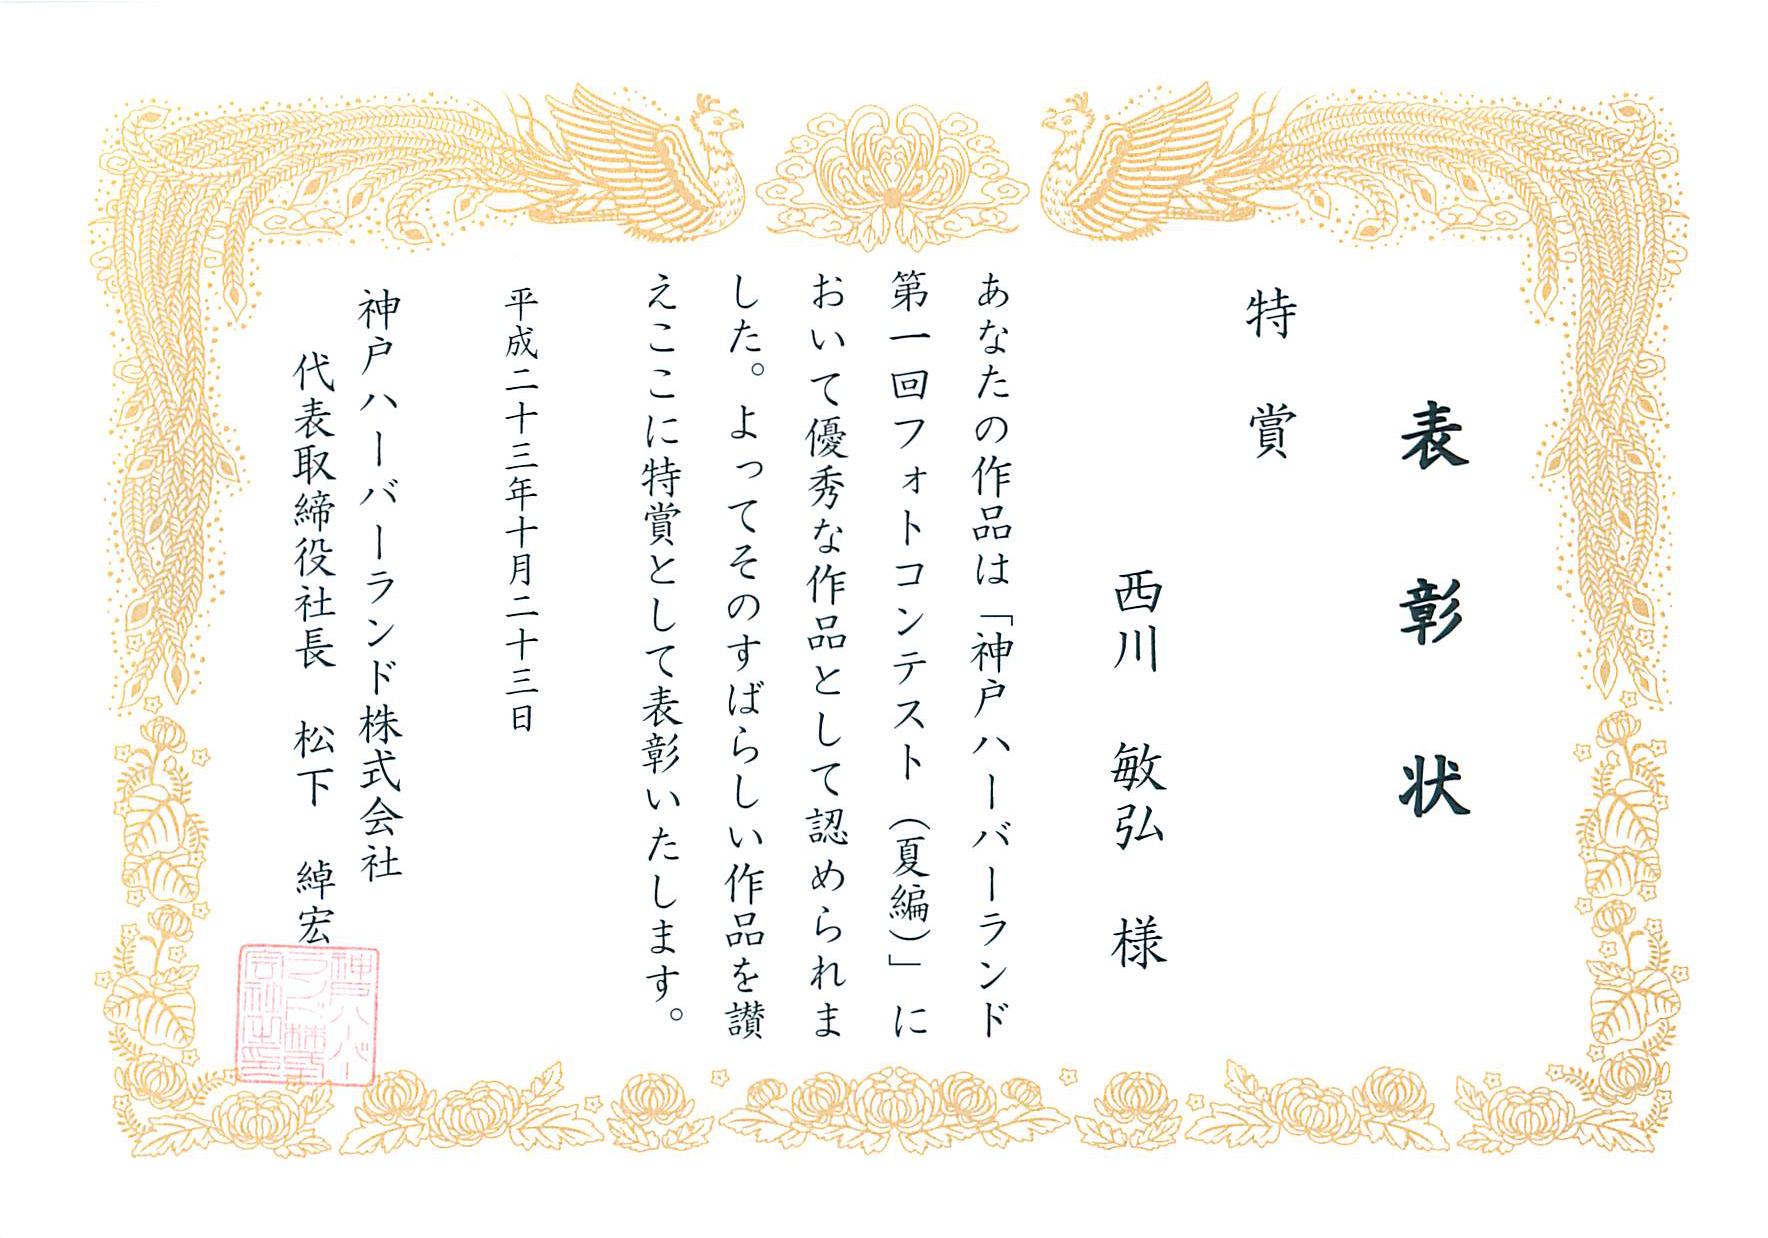 表彰状
特賞
西川 敏弘 様
あなたの作品は「神戸ハーバーランド
第一回フォトコンテスト(夏編)」に
おいて優秀な作品として認められま
した。よってそのすばらしい作品を讃
えここに特賞として表彰いたします。
平成二十三年十月二十三日
神戸ハーバーランド株式会社
代表取締役社長 松下 綽宏
神戸ハーバー
ランド株式
会社之印